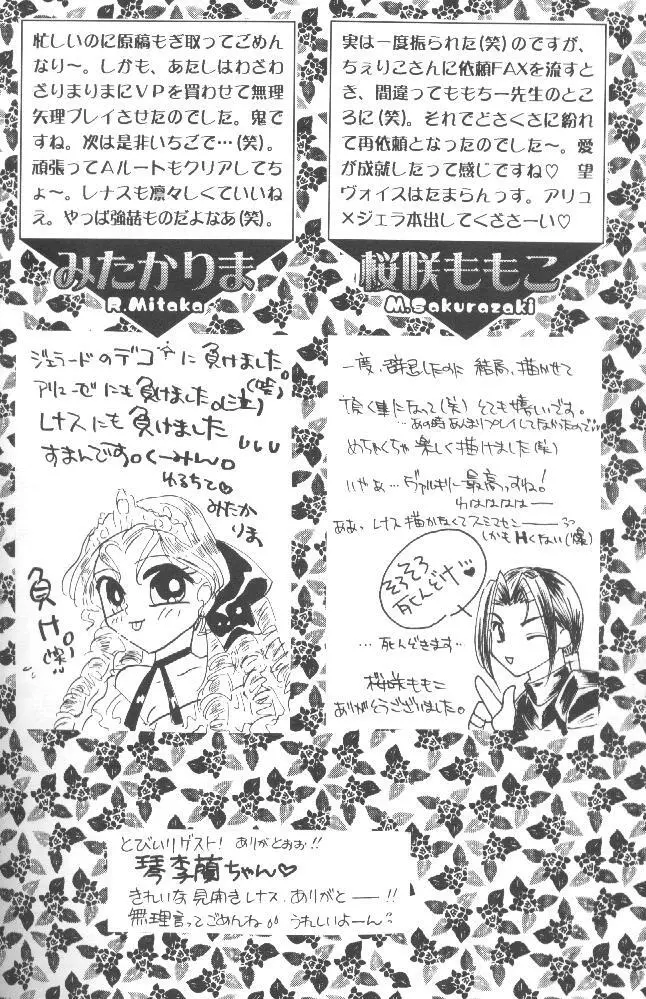 忙しいのに原稿もぎ取ってごめん
なり〜。しかも、あたしはわざわ
ざまりまりにVPを買わせて無理
矢理プレイさせたのでした。鬼で
すね。次は是非いちごで…(笑)。
頑張ってAルートもクリアしてち
ょ〜。レナスも凛々しくていいね
ぇ。やっぱ強喆ものだよなあ(笑)。
みたかりま
R.Mitaka
ジェラードのデコに負けました。
アリューゼにも負けました。(泣)
レナスにも負けました
すまんです。くーみん。
ゆるちて♡
みたか
りま
負け。
(笑)
実は一度振られた(笑)のですが、
ちぇりこさんに依頼FAXを流すと
き、間違ってももちー先生のとこ
ろに(笑)。それでどさくさに紛れ
て再依頼となったのでした〜。愛
が成就したって感じですね♡ 望
ヴォイスはたまらんっす。アリュ
×ジェラ本出してくださーい♡
桜咲ももこ
M.Sakurazaki
一度、辞退したのに 結局、描かせて
頂く事になって(笑) とても嬉しいです。
あの時あんまりプレイしてなかったので…
めちゃくちゃ楽しく描けました(笑)
いやぁ…ヴァルキリー最高っすね!
わはははは―
ああ、レナス描かなくてスミマセン――
しかもHくない(爆)
そろそろ
死んどけ…♥
…死んどきます…
桜咲ももこ
ありがとうございました。
とびいりゲスト! ありがとおお!!
琴李蘭ちゃん♡
きれいな見開きレナス、ありがと――!!
無理言ってごめんね うれしいよーん